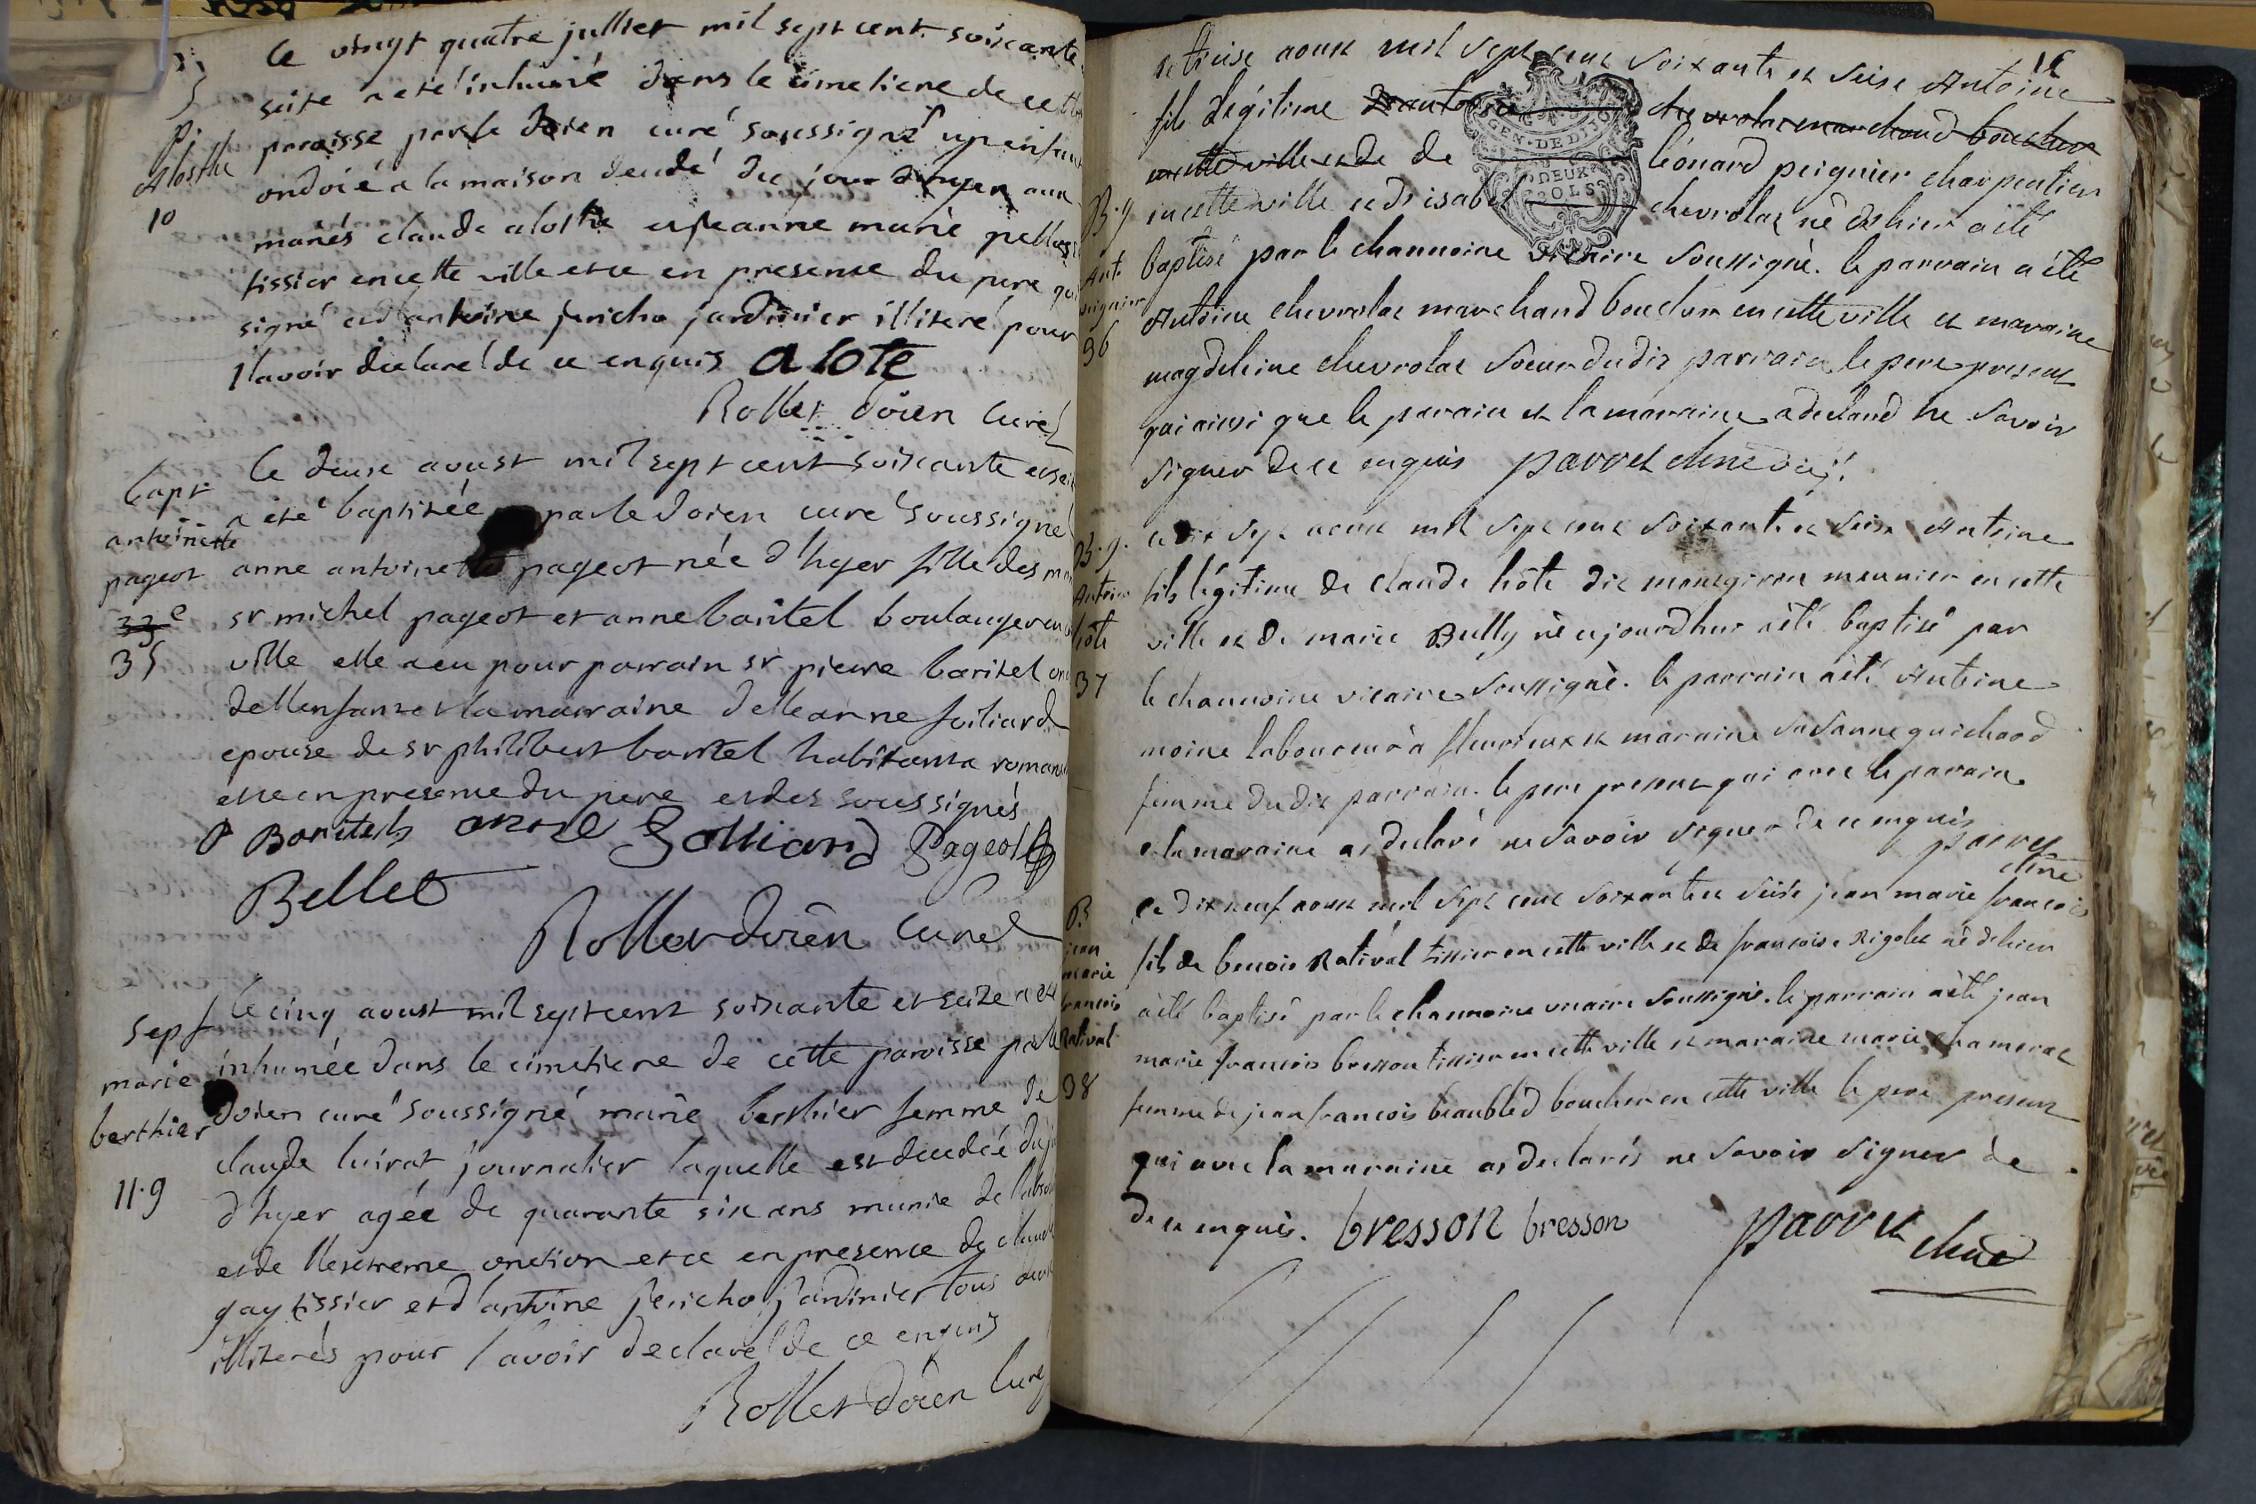 S
p.
alosthe
10
le vingt quatre jullier mil sept cent soixante
seize a eté inhumé dans le cimetiere de cette
paroisse par le doien curé soussigné un enfant
ondoié a la maison decedé du jour d'hyer aux
mariés claude alosthe et jeanne marie
tissier en cette ville et ce en presense du pere qui
signé et d'antoine jericho jardinier illiteré pour
lavoir declaré de ce enquis alote
Rollet doien curé
bapt
antoinette
pageot
33e
35
le deuse aoust mil sept cent soixante et seize
a eté baptisée par le doien curé soussigné
anne antoinette pageot née d'hyer fille des
sr michel pageot et anne baritel boulanger en
ville elle a eu pour parrain sr pierre baritel
de lenfant et la marraine delle anne
epouse de sr philibert baritel habitant a
et ce en presense du pere et des soussignés
P Baritel Pageot
Bellet
Rollet doien curé
sept
marie
berthier
11.9
le cinq aoust mil sept cent soixante et seize a eté
inhumée dans le cimetiere de cette paroisse par le
doien curé soussigné marie berthier femme de
claude luirat journalier laquelle est decedée du jour
d'hyer agée de quarante six ans munie de
et de llextreme onction et ce en presence de claude
gay tissier et d'antoine jericho jardinier tous deux
illiterés pour lavoir declaré de ce enquis
Rollet doien curé
16
B.9
Ant.
peignier
36
ce treise aoust mil sept cent soixante et seise Antoine
GEN. DE DIJON
DEUX
SOLS
fils légitime d'antoine chevrolat marchand boucher
en cette ville et de de léonard peignier charpentier
en cette ville et d'isabel chevrolat né d'hier a èté
baptisé par le channoine vicaire soussignè. le parrain a èté
Antoine chevrolat marchand boucher en cette ville et maraine
magdeleine chevrolat soeur dudit parrain le pere present
qui ainsi que le parain et la maraine a declaré ne savoir
signer de ce enquis
B.9.
Antoine
hôte
37
ce dix sept aoust mil sept cent soixante et seise Antoine
fils légitime de claude hôte dit meunier en cette
ville et de marie Bully né cejourdhui a èté baptisé par
le channoine vicaire soussigné. le parrain a èté Antoine
moine laboureur a fleurieux et maraine susanne guichard
femme dudit parrain. le pere present qui avec le parain
et la maraine a declaré ne savoir signer de ce enquis
B.
jean
marie
francois
Ratival
38
ce dix neuf aoust mil sept cent soixante et seise jean marie francois
fils de benois Ratival tissier en cette ville et de francoise Rigolet né d'hier
a èté baptisé par le channoine vicaire soussigné. le parrain a èté jean
marie francois bresson tissier en cette ville et maraine marie chamerat
femme de jean francois beaubled boucher en cette ville le pere present
qui avec la maraine a declarés ne savoir signer de
de ce enquis. bresson bresson